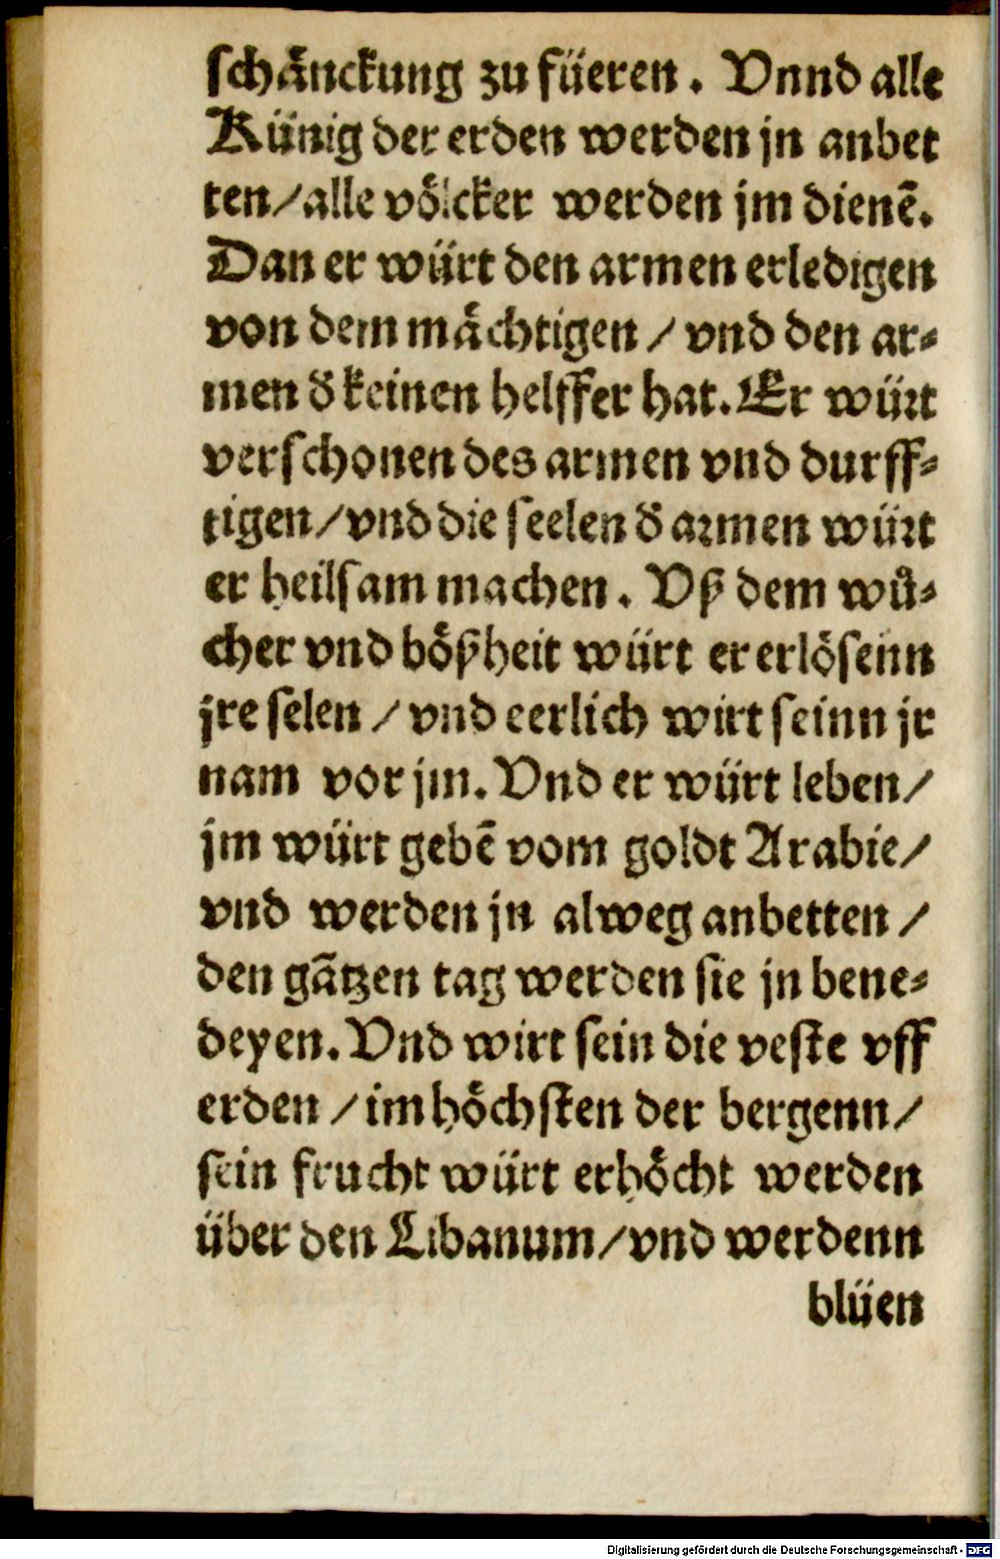 schänckung zu füeren. Vnnd alle
Künig der erden werden jn anbet
ten/alle völcker werden jm dienē.
Dan er würt den armen erledigen
von dem mächtigen / vnd den ar⸗
men đ keinen helffer hat. Er würt
verschonen des armen vnd durff⸗
tigen/vnd die seelen đ armen würt
er heilsam machen. Vß dem wů⸗
cher vnd bößheit würt er erlösenn
jre selen / vnd eerlich wirt seinn jr
nam vor jm. Vnd er würt leben/
jm würt gebē vom goldt Arabie/
vnd werden jn alweg anbetten /
den gātzen tag werden sie jn bene⸗
deyen. Vnd wirt sein die veste vff
erden / im höchsten der bergenn/
sein frucht würt erhöcht werden
über den Libanum/vnd werdenn
blüen
Digitalisierung gefördert durch die Deutsche Forschungsgemeinschaft - DFG